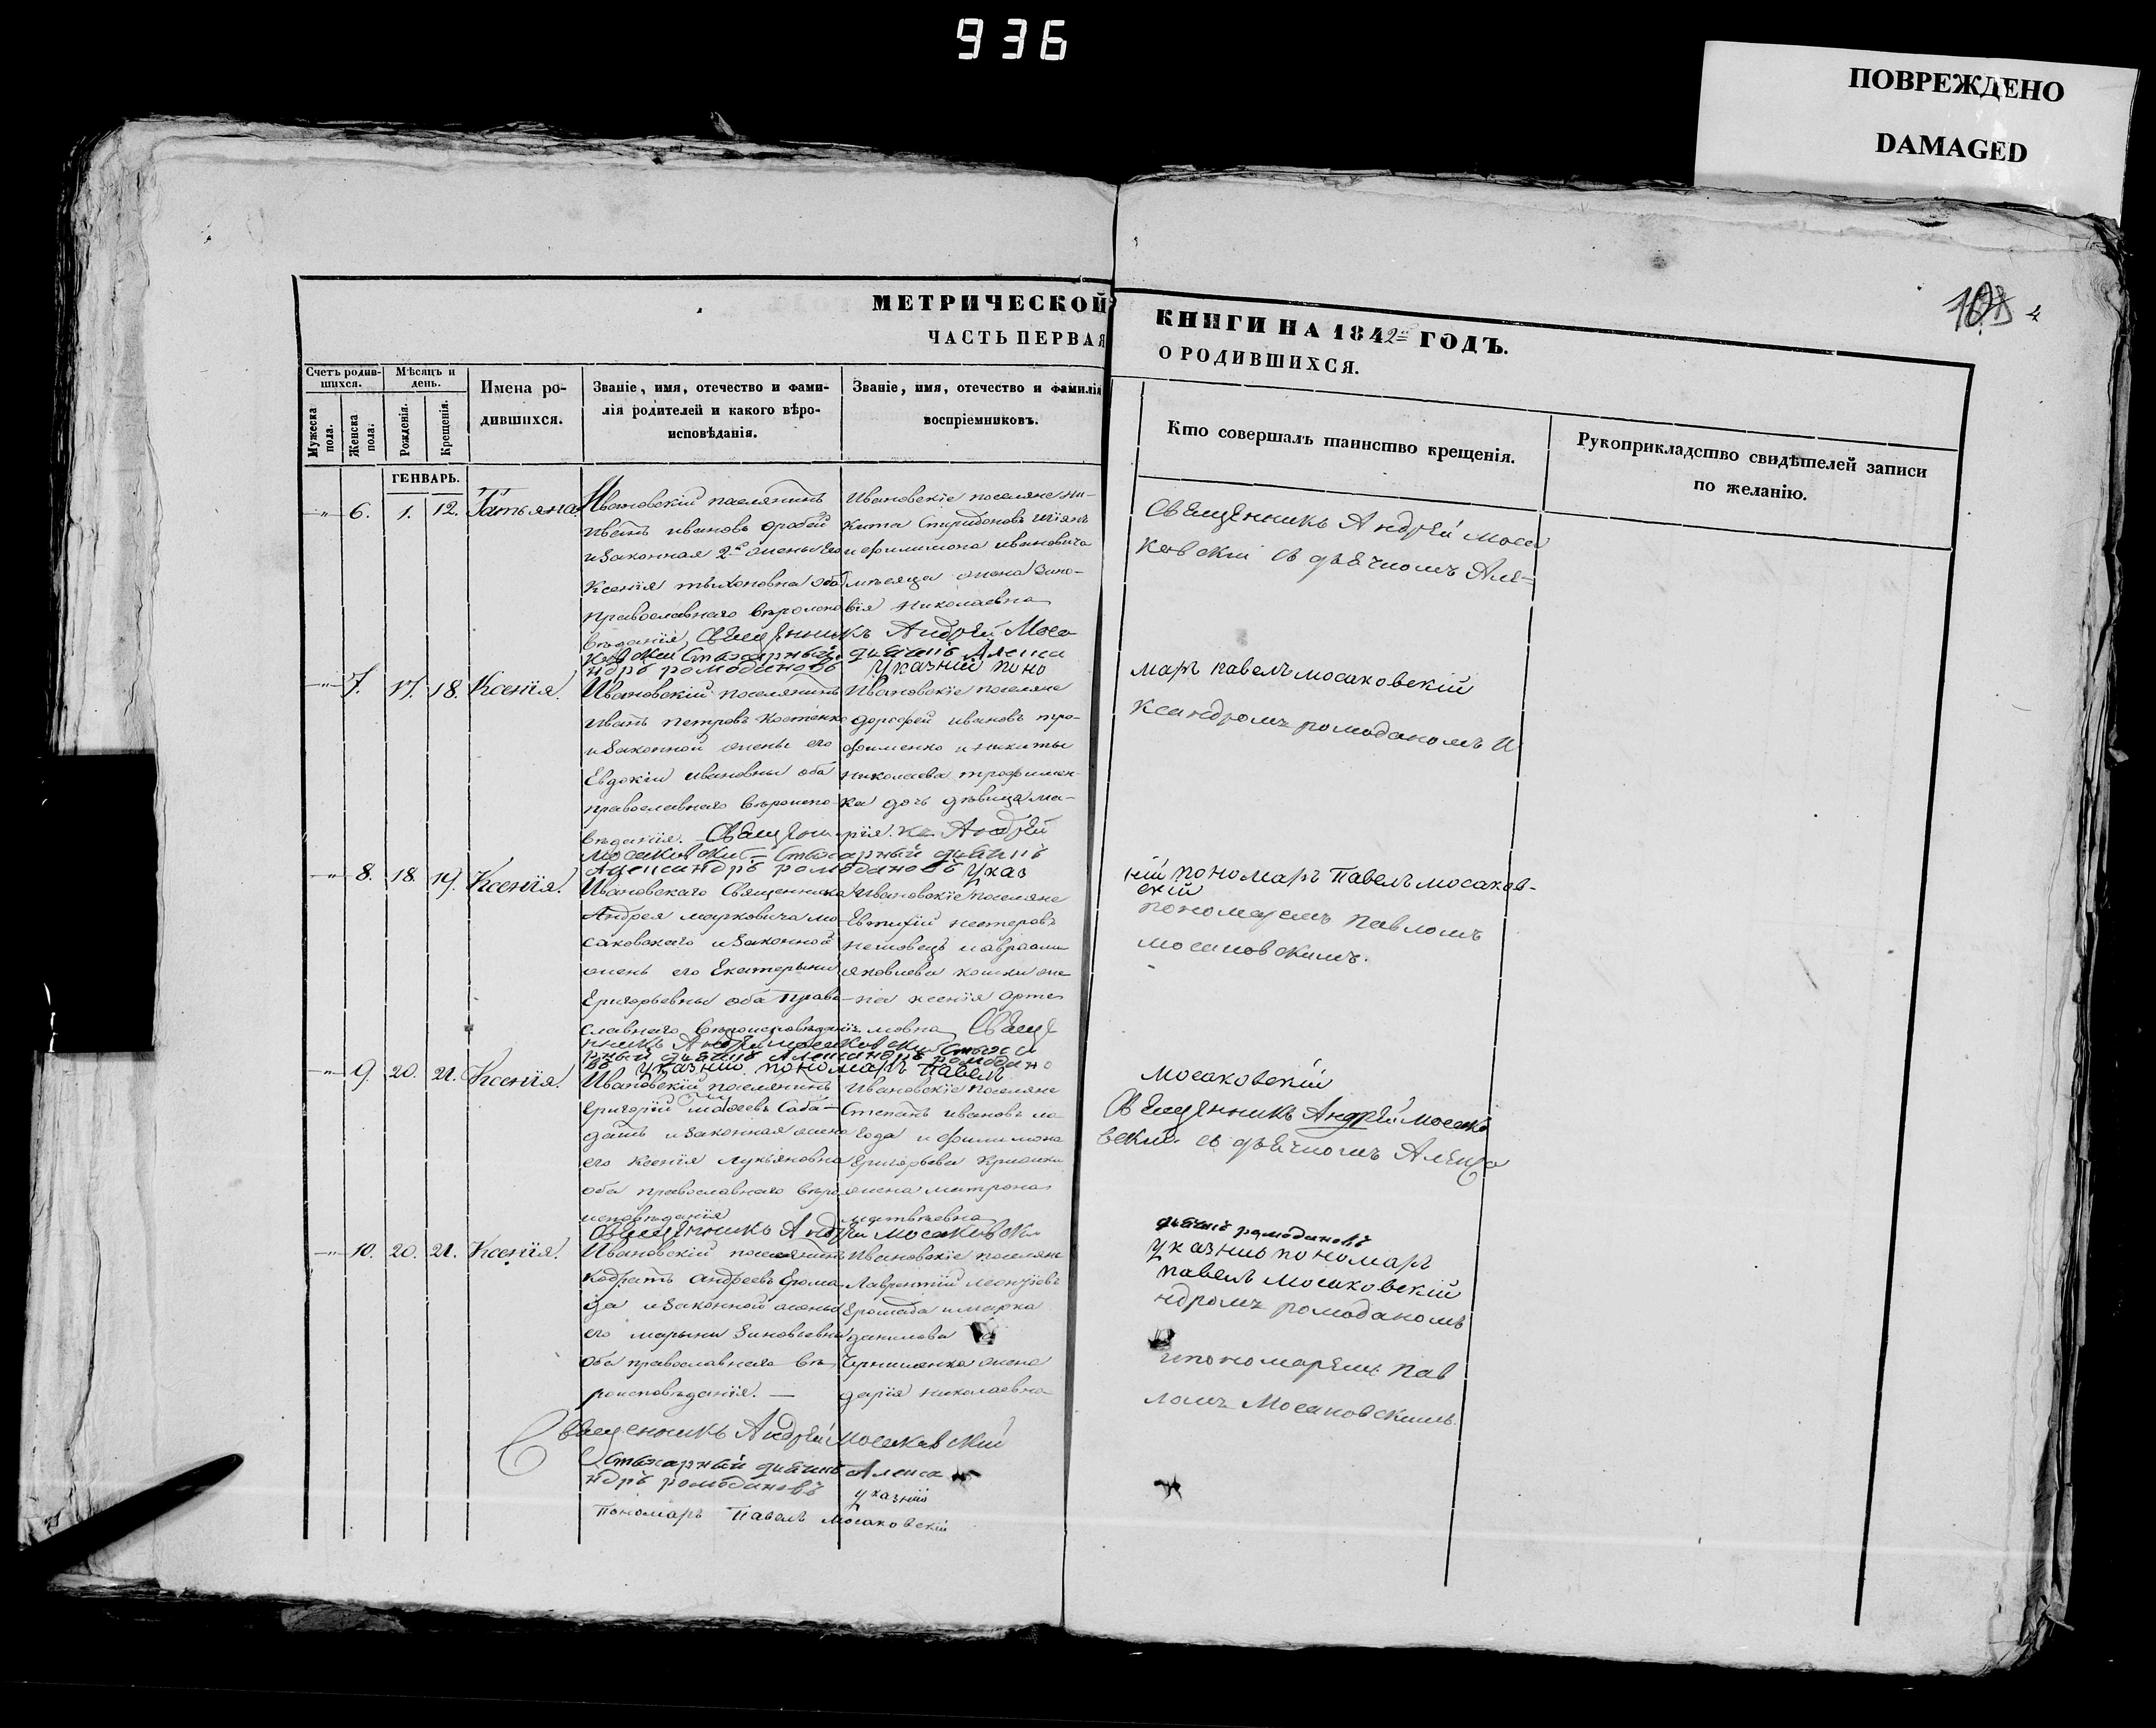 936
ПОВРЕЖДЕНО
DAMAGED
МЕТРИЧЕСКОЙ КНИГИ НА 1842 ГОДЪ.
ЧАСТЬ ПЕРВАЯ О РОДИВШИХСЯ.
Счетъ родив-
шихся.
Мужеска пола.
Женска пола.
Мѣсяцъ и
день.
Рожденія.
Крещенія.
Имена ро-
дившихся.
Званіе, имя, отечество и фами-
лія родителей и какого вѣро-
исповѣданія.
Званіе, имя, отечество и фамилія
воспріемниковъ.
Кто совершалъ таинство крещенія.
Рукоприкладство свидѣтелей записи
по желанію.
ГЕНВАРЬ.
6. 1. 12. Татьяна
Ивановскій поселянинъ
иванъ ивановъ
и законная 2й жены его
Ксенія тихоновна оба
православнаго вѣроиспо
вѣданія
Ивановскіе поселяне ни-
кита Спиридоновъ
и филимона ивановича
жена Зино-
вія николаевна
Священникъ Андрей Моса
ковскій Стихарный дьячикъ Алекса
ндръ ромодановъ Указній поно
Священникъ Андрей Моса
ковскій съ дьячкомъ Але-
7. 17. 18. Ксенія.
Ивановскій поселянинъ
иванъ петровъ Костенко
и законной жены его
Евдокіи ивановны оба
православнаго вѣроиспо-
вѣданія.
Ивановскіе поселяне
дорофей ивановъ тро-
фименко и никиты
николаева трофимен-
ка дочь дѣвица ма-
рія.
Священникъ Андрей
Мосаковскій Стихарный дьячикъ
Александръ ромодановъ Указ
маръ павелъ мосаковскій
ксандромъ ромоданомъ И
8. 18. 19. Ксенія.
Ивановскаго Священника
Андрея марковича мо-
саковскаго и законной
жены его Екатерины
Григорьевны оба Право-
славнаго вѣроисповѣданія
Ивановскіе поселяне
Евтифій нестеровъ
и авраама
яковлева кошки же-
на ксенія арте-
мовна
Священикъ Андрей Мосаковскій Стиха
рный дьячикъ Александръ ромодано
въ Указній пономаръ павелъ
ній пономаръ Павелъ мосаков-
скій
пономаремъ Павломъ
Мосаковскимъ.
9. 20. 21. Ксенія.
Ивановскій поселянинъ
Григорій
дашъ и законная жена
его Ксенія лукьяновна
оба православнаго вѣро
исповѣданія
Ивановскіе поселяне
Степанъ ивановъ
и филимона
Григорьева
жена матрона
матвѣевна
Священникъ Андрей Мосаковскій
мосаковскій
Священникъ Андрей Мосако
вскій съ дьячкомъ Алекса
10. 20. 21. Ксенія.
Ивановскій поселянинъ
Кодратъ андреевъ Грома
да и законной жены
его марыны Зиновьевны
оба православнаго вѣ
роисповѣданія.
Ивановскіе поселяне
Лаврентій леонтіевъ
Громада и марка
данилова
жена
дарія николаевна
дьячикъ ромодановъ
указній пономаръ
павелъ мосаковскій
ндромъ ромоданомъ
и пономаремъ Пав
ломъ Мосаковскимъ.
Священникъ Андрей Мосаковскій
Стихарный дьячикъ Алекса
ндръ ромодановъ указній
Пономаръ Павелъ Мосаковскій